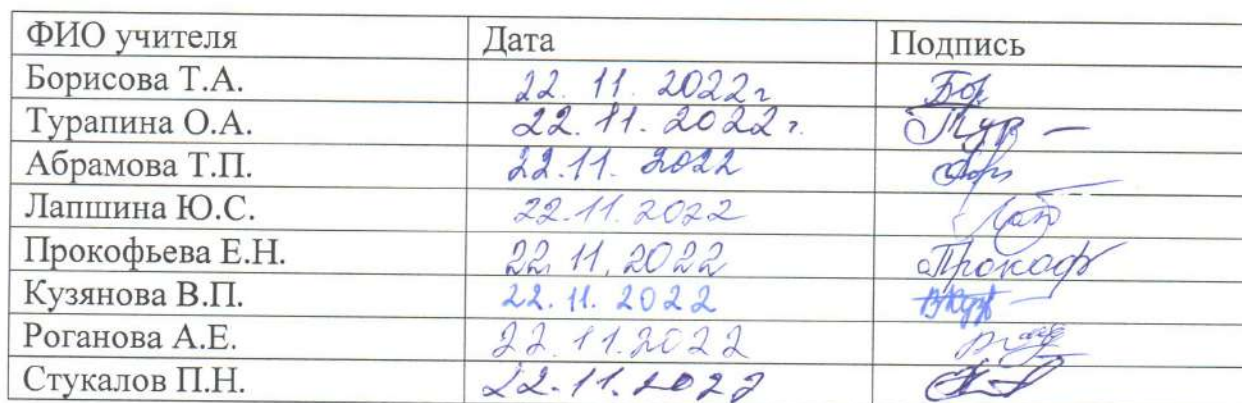 ФИО учителя Дата Подпись
Борисова Т.А. 22. 11. 2022г Бор
Турапина О.А. 22. 11. 2022г. Тур
Абрамова Т.П. 22.11. 2022
Лапшина Ю.С. 22.11. 2022 Лап
Прокофьева Е.Н. 22. 11. 2022 Прокоф
Кузянова В.П. 22. 11. 2022 ВКуз
Роганова А.Е. 22. 11. 2022
Стукалов П.Н. 22. 11. 2022